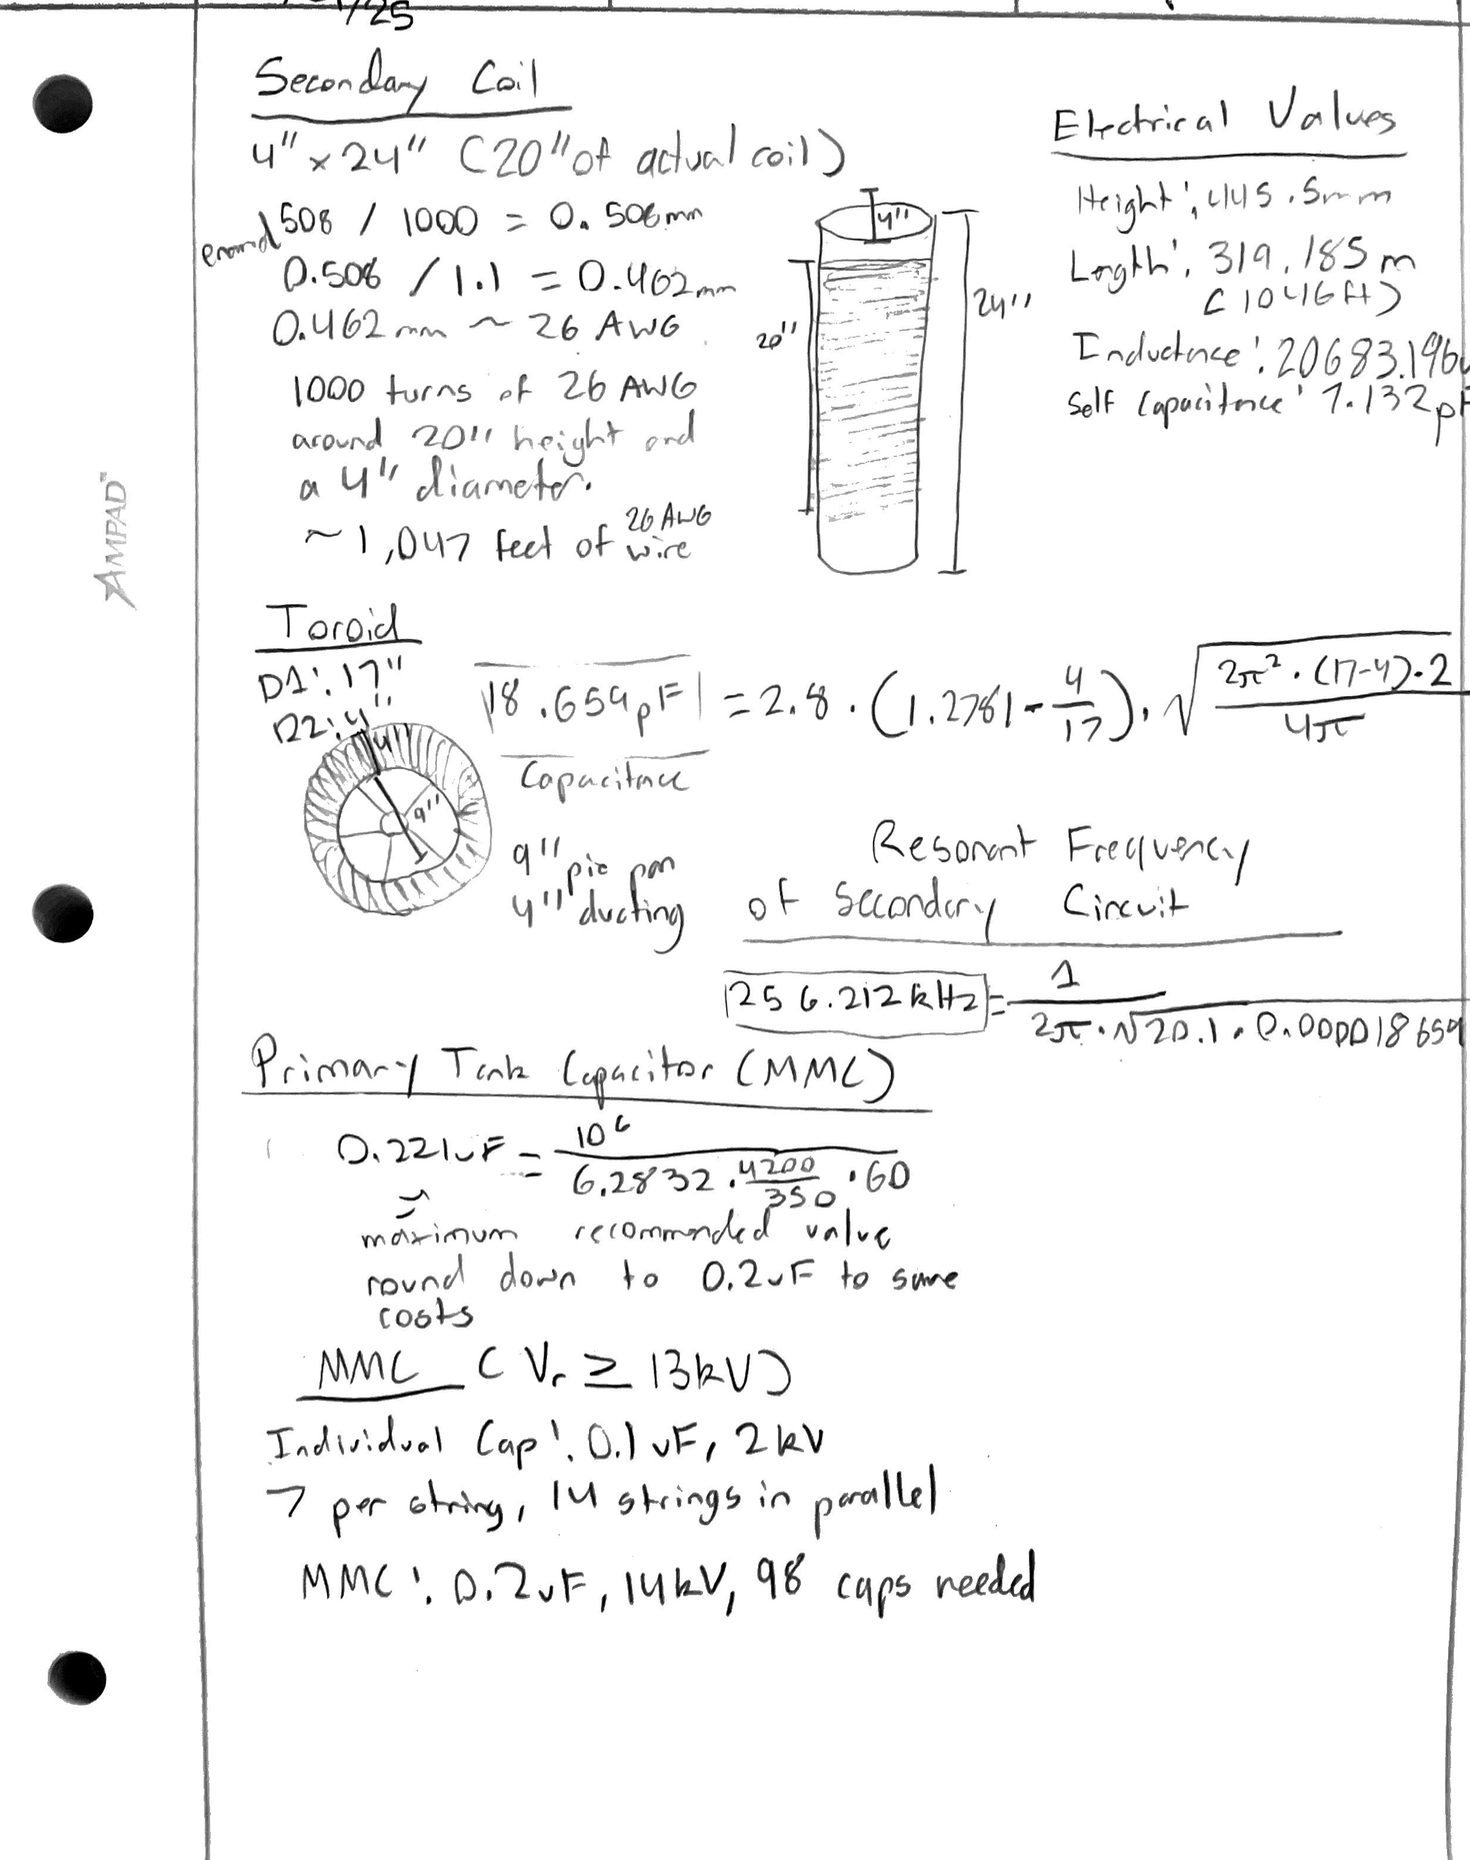 /25
Secondary Coil
4" x 24" (20" of actual coil)
508 / 1000 = 0.508mm
0.508 / 1.1 = 0.462mm
0.462mm ~ 26 AWG
1000 turns of 26 AWG
around 20" height and
a 4" diameter.
~1,047 feet of 26 AWG wire
4"
20"
24"
Electrical Values
Height: 445.5mm
Length: 319.185m
(1046ft)
Inductance: 20683.196u
Self Capacitance: 7.132pF
AMPAD™
Toroid
D1: 17"
D2: 4"
4"
9"
18.659pF = 2.8 · (1.2781 - 4/17) · √(2π² · (17-4) · 2 / 4π)
Capacitance
9" pie pan
4" ducting
Resonant Frequency
of Secondary Circuit
256.212kHz = 1 / 2π · √20.1 · 0.000018659
Primary Tank Capacitor (MMC)
0.221uF = 10⁶ / 6.2832 · 4200/350 · 60
maximum recommended value
round down to 0.2uF to save
costs
MMC (Vr ≥ 13kV)
Individual Cap: 0.1uF, 2kV
7 per string, 14 strings in parallel
MMC: 0.2uF, 14kV, 98 caps needed